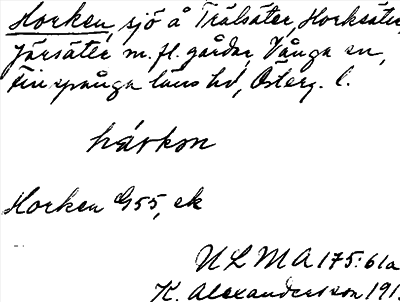 Horken, sjö å Trälsäter, Horksäter,
Järsäter m. fl. gårdar, Vånga sn,
Finspånga läns hd, Österg. l.
hårkon
Horken G55, ek
ULMA 175:61a
K. Alexandersson 191